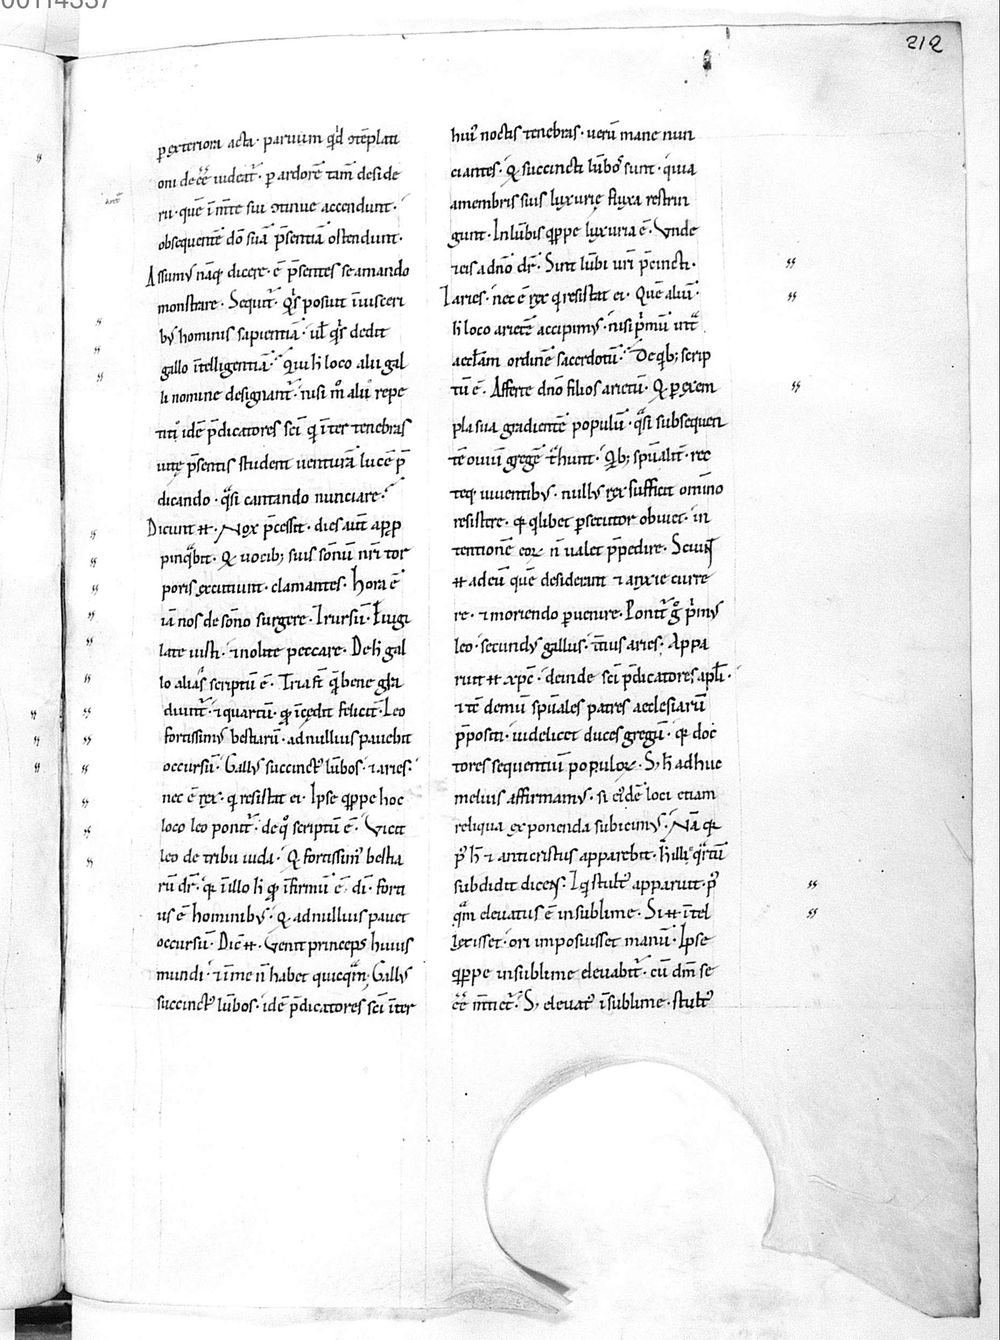 00114337
212
p exteriora acta · paruum qͥd ɔtēplati
oni deēē uideāt᷑ · p ardorē tam̄ deside
rii · quē īmte sui ɔtinue accendunt ·
obsequentē dō suā p̄sentiā ostendunt ·
Assumꝰ nāq dicere · ē p̄sentes se amando
monstrare · Sequit᷑ · Qͥs posuit īuisceri
bꝰ hominis sapientiā · ul̄ qͥs dedit
gallo ītelligentiā · Qui h̄ loco alii gal
li nomine designant᷑ · nisi m̊ aliͦ repe
titi idē p̄dicatores sc̄i qͥ īter tenebras
uitę p̄sentis student uenturā lucē p̄
dicando · qͣsi cantando nunciare ·
Dicunt ⁊̄ · Nox p̄cessit · dies aut̄ app
pinqͣbit · Q uocib; suis sōnū nr̄i tor
poris excutiunt · clamantes · Hora ē
iā nos de sōno surgere · Irursū · Euigi
late iusti · ⁊ nolite peccare · De h̄ gal
lo alias scriptū ē · Tria st̄ q̄ bene gͣdi
diunt᷑ · ⁊ quartū · qđ īcedit felicit̄ · Leo
fortissimꝰ bestiarū · ad nullius pauebit
occursū · Gallꝰ succinctꝰ lūbos · ⁊ aries ·
nec ē rex · qͥ resistat ei · Ipse qͥppe hoc
loco leo ponit᷑ · de qͦ scriptū ē · Vicit
leo de tribu iuda · Q fortissimꝰ bestia
rū dr̄ · qꝛ īillo h̄ qđ īfirmū ē · dī · forti
us ē hominibꝰ · Q ad nullius pauet
occursū · Dic̄ ⁊̄ · Venit princeps huius
mundi · ⁊ īme n̄ habet quicqͣm · Gallꝰ
succinctꝰ lūbos · idē p̄dicatores sc̄i īter
huiꝰ noctis tenebras · uerū mane nun
ciantes · Q succincti lūbos sunt · quia
amembris suis luxurię fluxa restrin
gunt · In lūbis qͥppe luxuria ē · Vnde
⁊ eis a dn̄o dr̄ · Sint lūbi ur̄i p̄cincti ·
Iaries · nec ē rex qͥ resistat ei · Quē aliū
h̄ loco arietē accipimꝰ · nisi pͥmū ītͣ
aecl̄am ordinē sacerdotū · De qͥb; scrip
tū ē · Afferte dn̄o filios arietū · Q p exem
pla sua gradientē populū · qͣsi subsequen
tē ouiū gregē tͣhunt · Qͥb; spūalit̄ · rec
teq uiuentibꝰ · nullꝰ rex sufficit om̄ino
resistere · qꝛ qͥlibet p̄secutor obuiet · in
tentionē eoꝝ n̄ ualet p̄pedire · Sciunt
⁊̄ ad eū quē desiderant ⁊ anxie curre
re · ⁊ moriendo puenire · Ponit᷑ g̊ pͥmꝰ
leo · secundꝰ gallus · t̄tius aries · Appa
ruit ⁊̄ xp̄c · deinde sc̄i p̄dicatores apl̄i ·
⁊ tc̄ demū spūales patres aecclesiarū
p̄positi · uidelicet duces gregū · qꝛ doc
tores sequentiū populoꝝ · S; h̄ adhuc
melius affirmamꝰ · si eiͥdē loci etiam
reliqua exponenda subicimꝰ · Nā qꝛ
p̄ h̄ ⁊ anticristus apparebit · h̄ illic qͣrtū
subdidit dicens · I q stultꝰ apparuit · p̄
qͣm eleuatus ē in sublime · Si ⁊̄ ītel
lexisset · ori imposuisset manū · Ipse
qͥppe in sublime eleuabit᷑ · cū dm̄ se
ēē m̄tiet᷑ · S; eleuatꝰ īsublime · stultꝰ